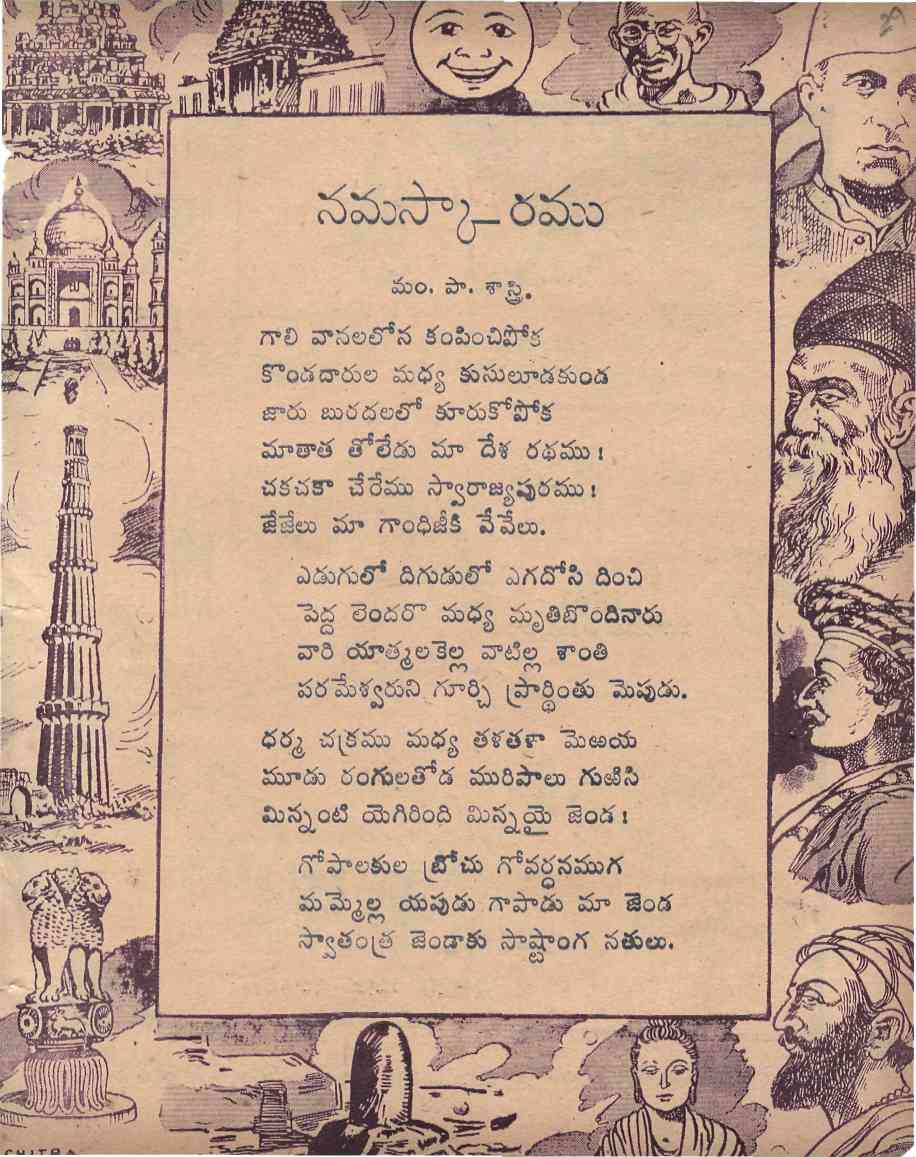 నమస్కారము
మం. పా. శాస్త్రి.
గాలి వానలలోన కంపించిపోక
కొండదారుల మధ్య కుసులూడకుండ
జారు బురదలలో కూరుకోపోక
మాతాత తోలేడు మా దేశ రథము!
చకచకా చేరేము స్వారాజ్యపురము!
జేజేలు మా గాంధిజీకి వేవేలు.
ఎడుగులో దిగుడులో ఎగదోసి దించి
పెద్ద లెందరొ మధ్య మృతిబొందినారు
వారి యాత్మలకెల్ల వాటిల్ల శాంతి
పరమేశ్వరుని గూర్చి ప్రార్థింతు మెపుడు.
ధర్మ చక్రము మధ్య తళతళా మెఱయ
మూడు రంగులతోడ మురిపాలు గుఱిసి
మిన్నంటి యెగిరింది మిన్నయై జెండ!
గోపాలకుల బ్రోచు గోవర్ధనముగ
మమ్మెల్ల యపుడు గాపాడు మా జెండ
స్వాతంత్ర జెండాకు సాష్టాంగ నతులు.
CHITRA